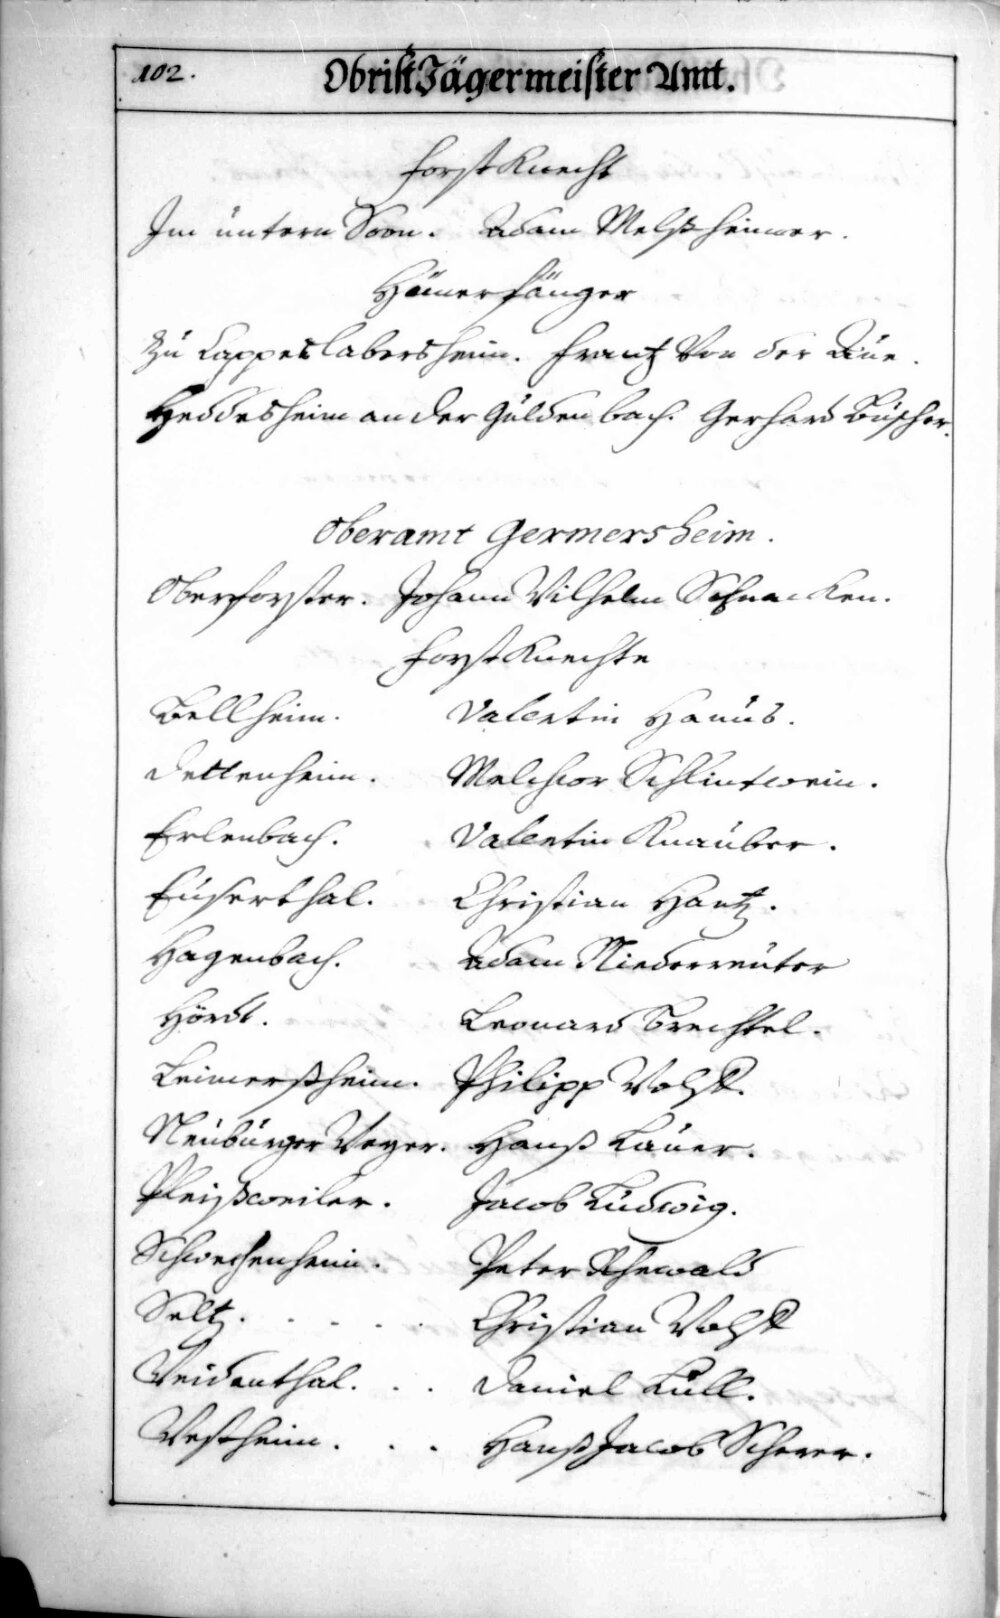 102.
Obrist Jägermeister Amt.
Forst Knecht
Im untern Soon. Adam Melßheimer.
Hünerfänger
Zu Lappenlabersheim. Frantz Von der Aue.
Heddesheim an der Güldenbach. Gerhard Büscher.
Oberamt Germersheim.
Oberforster. Johann Wilhelm Schnacken.
Forst Knechte
Bellheim. Valentin Hanus.
Dettenheim. Melchior Schlintwein.
Erlenbach. Valentin Knauber.
Euserthal. Christian Hantz.
Hagenbach. Adam Niederreuter
Hördt. Leonard Brechtel.
Leimerßheim. Philipp Volck.
Neuburger Weyer. Hanß Lauer.
Pleißweiler. Jacob Ludwig.
Schwechenheim. Peter Ehewald
Seltz. Christian Volck
Weidenthal. Daniel Kull.
Westheim. Hanß Jacob Scherer.